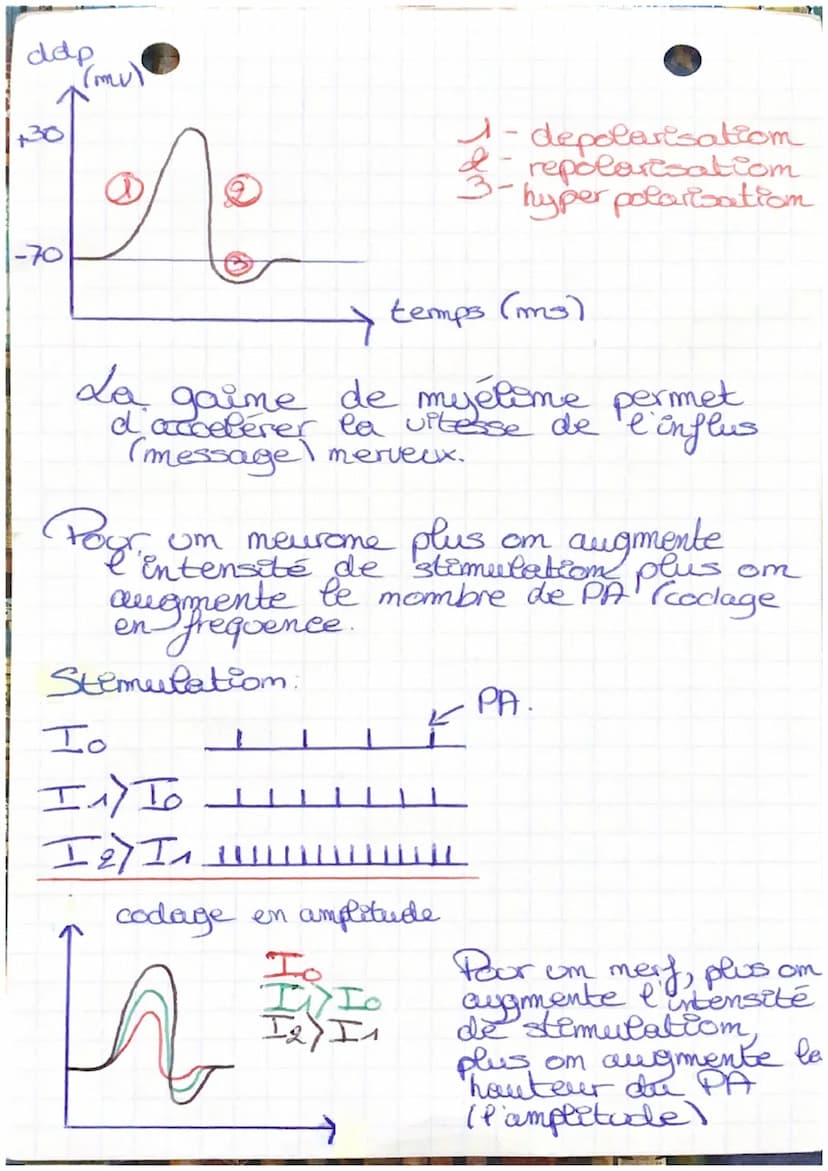 ddp
(mv)
+30
1 - depolarisation
2 - repolarisation
3 - hyperpolarisation
1
2
-70
3
temps (ms)
La gaine de myéline permet
d'accelérer la vitesse de l'influx
(message) nerveux.
Pour un neurone plus on augmente
l'intensité de stimulation, plus on
augmente le nombre de PA (codage
en frequence.
Stimulation:
PA.
I0
I1>I0
I2>I1
codage en amplitude
I0
I1>I0
I2>I1
Pour un nerf, plus on
augmente l'intensité
de stimulation,
plus on augmente la
hauteur du PA
(l'amplitude)